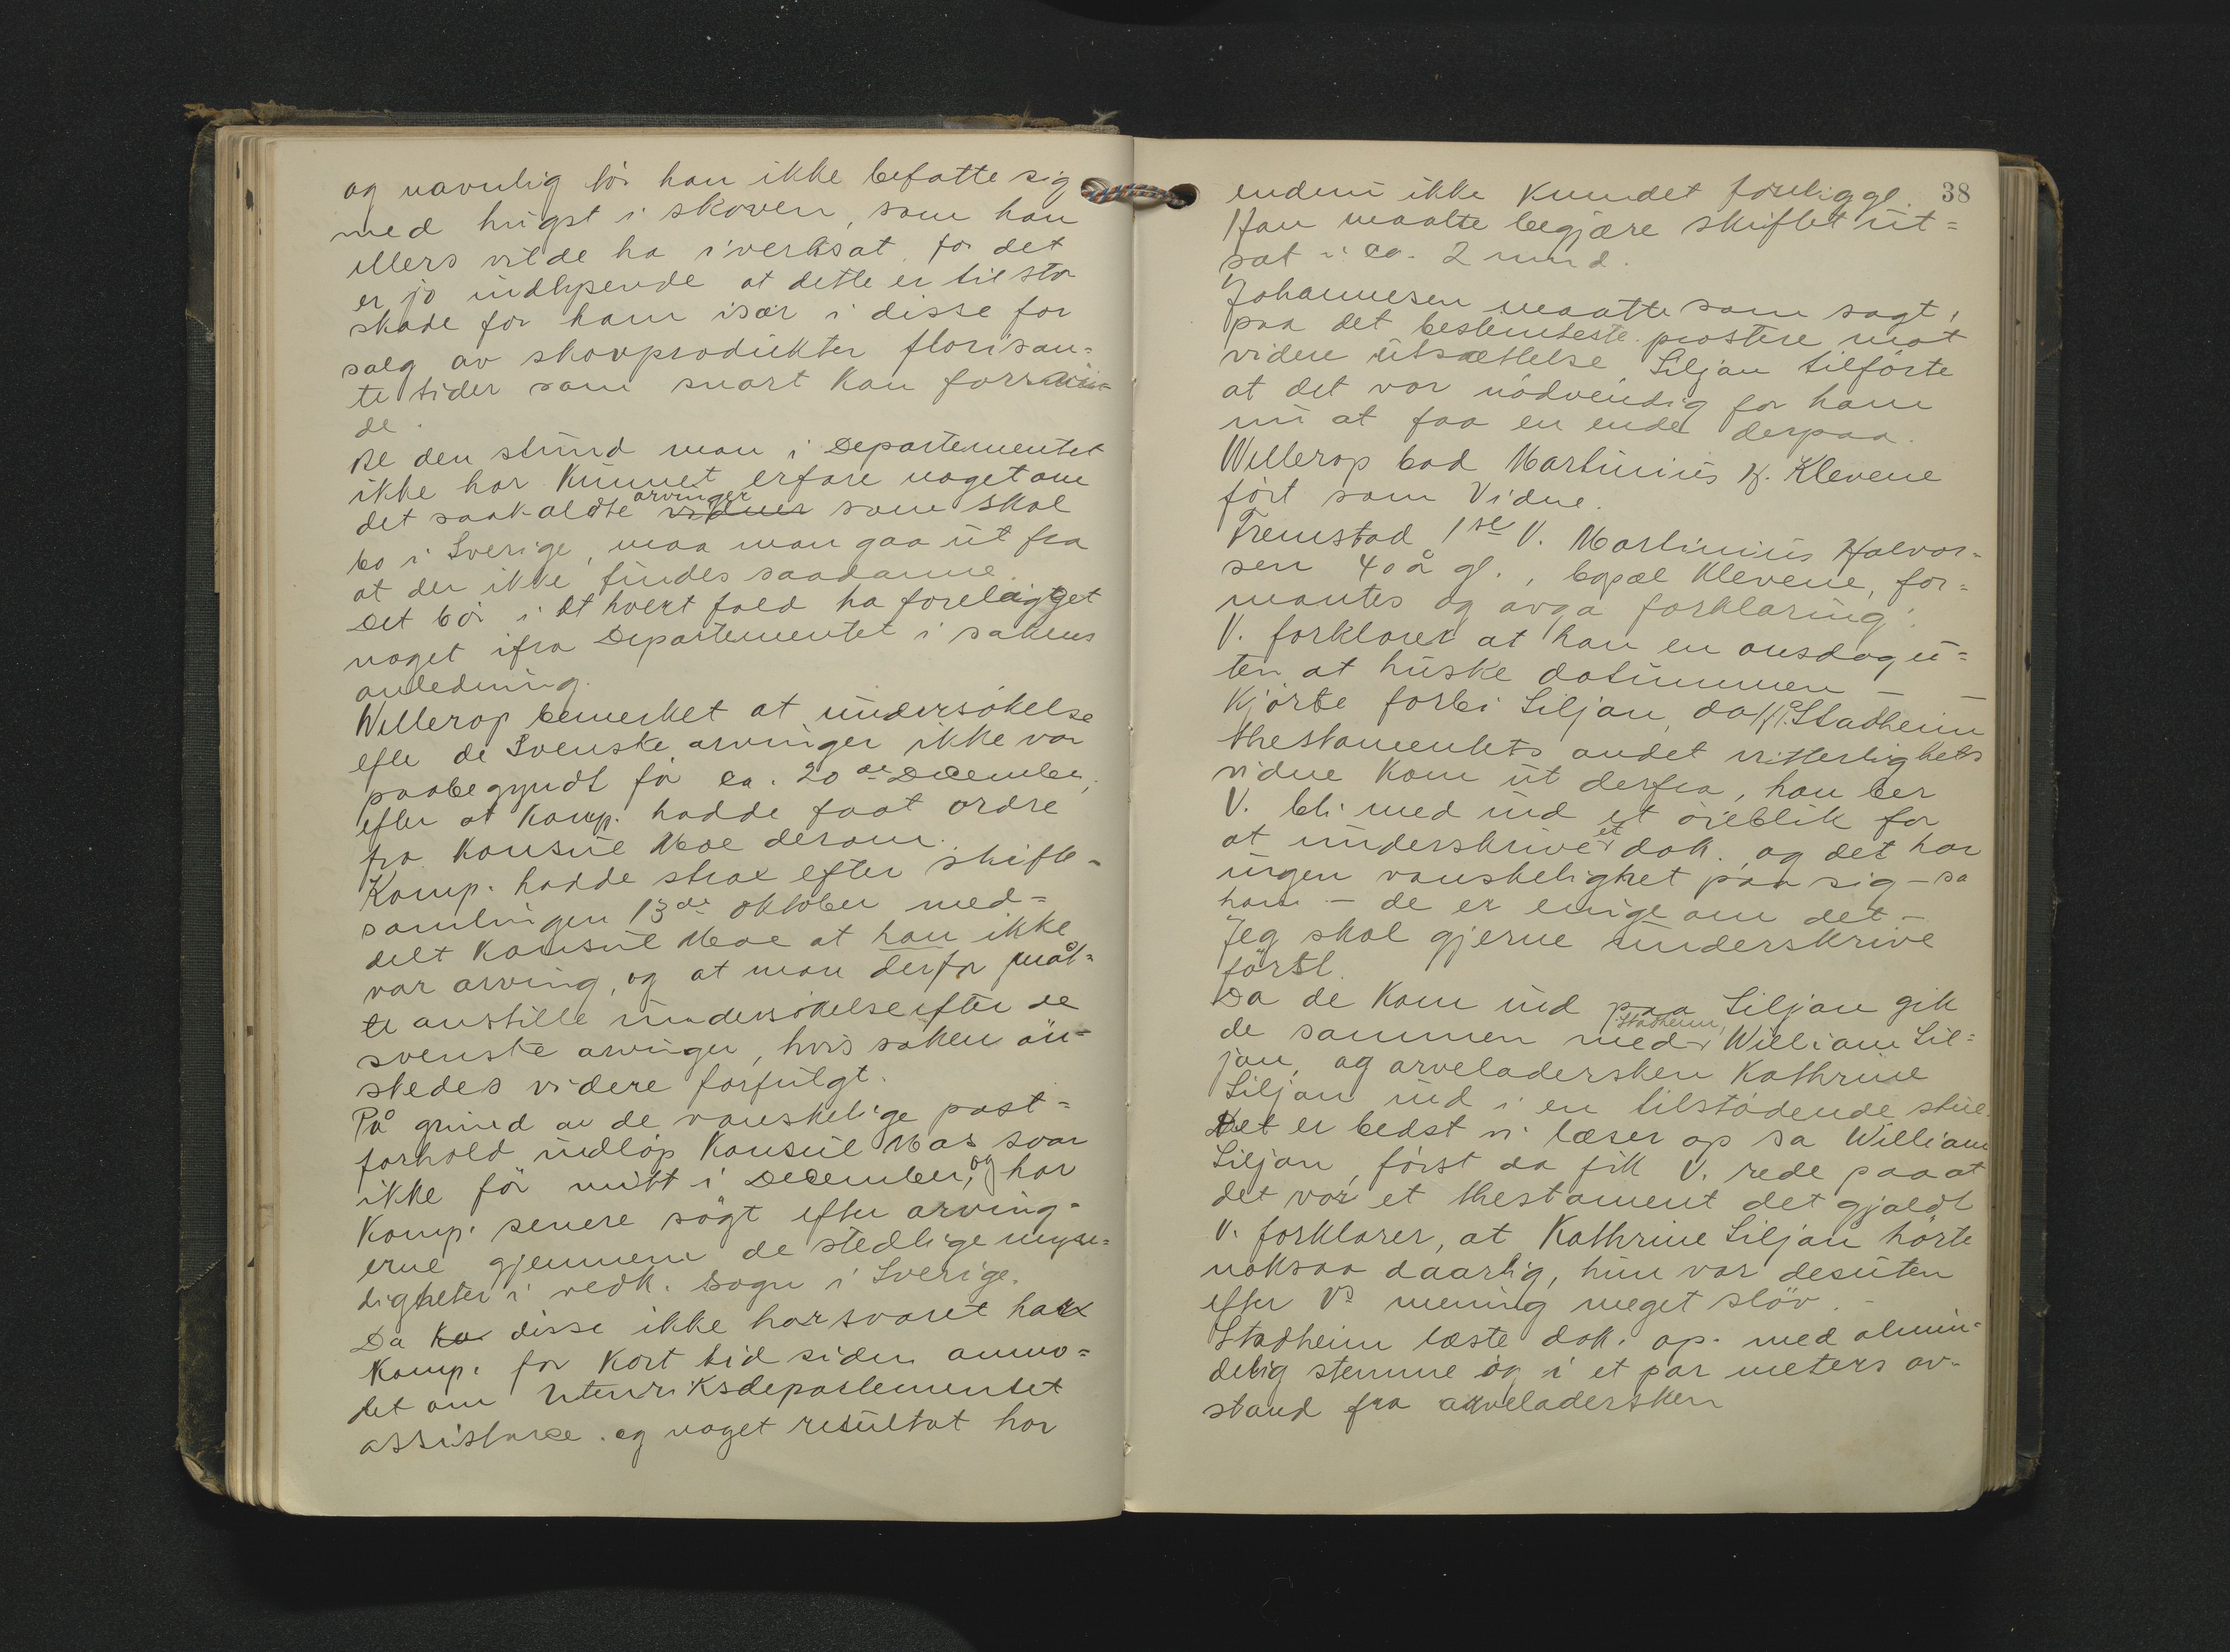 og navnlig tör han ikke befatte sig
med hugst i skoven, som han
ellers vilde ha iverksat, for det
er jo indlysende at dette er til stor
skade for ham især i disse for
salg av skovprodukter florisan-
te tider som snart kan forsvin-
de.
Al den stund man i Departementet
ikke har kunnet erfare noget om
arvinger
det saakaldte vidner som skal
bo i Sverige, maa man gaa ut fra
at der ikke findes saadanne.
Det bör i et hvert fald ha foreligget
noget ifra Departementet i sakens
anledning.
Willerop bemerket at undersökelse
efter de Svenske arvinger ikke var
paabegyndt för ca. 20de December,
efter at Komp. hadde faat ordre
fra Konsul Moe derom.
Komp. hadde strax efter skifte-
samlingen 13de oktober med-
delt Konsul Moe at han ikke
var arving, og at man derfor måt-
te anstille undersökelse efter de
svenske arvinger, hvis saken ön-
skedes videre forfulgt.
På grund av de vanskelige post-
forhold indlöp Konsul Moes svar
ikke för midt i December, og har
Komp. senere sögt efter arving-
erne gjennem de stedlige myn-
digheter i vedk. sogn i Sverige.
Da disse ikke har svaret har
Komp. for kort tid siden anmo-
det om Utenriksdepartementet
assistance. og noget resultat har
38
endnu ikke kundet foreligge.
Han maatte begjære skiftet ut-
sat i ca. 2 mnd.
Johannesen maatte som sagt,
paa det bestemteste protstere mot
videre utsættelse, Siljan tilförte
at det var nödvendig for ham
nu at faa en ende derpaa.
Willerop bad Martinius H. Klevene
fört som Vidne.
Fremstod 1ste V. Martinius Halvor-
sen 40 å gl., bopæl Klevene, for-
mantes og avga forklaring:
V. forklarer at han en onsdag u-
ten at huske datummen –
kjörte forbi Siljan, da Stadheim
thestamentets andet vitterlighets
vidne kom ut derfra, han ber
V. bli med ind et öieblik for
at underskrive et dok., og det har
ingen vanskelighet paa sig – sa
han – de er enige om det –
Jeg skal gjerne underskrive
först.
Da de kom ind paa Siljan gik
Stadheim,
de sammen med William Sil-
jan, og arveladersken Kathrine
Siljan ind i en tilstödende stue.
Det er bedst vi læser op sa William
Siljan, först da fik V. rede paa at
det var et thestament det gjaldt
V. forklarer, at Kathrine Siljan hörte
noksaa daarlig, hun var desuten
efter Vs mening meget slöv. –
Stadheim læste dok. op. med almin-
delig stemme og i et par meters av-
stand fra arveladersken